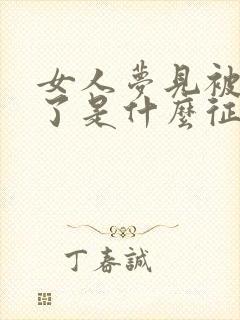 女人夢見被
了是什麼征
丁春誠